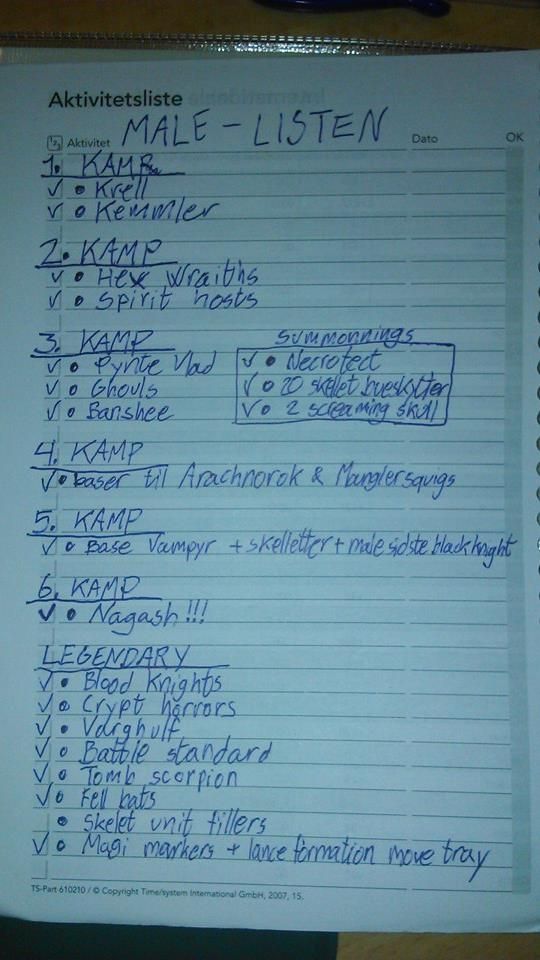 Aktivitetsliste
Aktivitet MALE - LISTEN Dato OK
1. KAMP
✓ • Krell
✓ • Kemmler
2. KAMP
✓ • Hex Wraiths
✓ • Spirit hosts
3. KAMP
✓ • Pynte Vlad
✓ • Ghouls
✓ • Banshee
Summonnings
✓ • Necrotect
✓ • 20 skellet bueskytter
✓ • 2 screaming skull
4. KAMP
✓ • baser til Arachnorok & Manglersquigs
5. KAMP
✓ • Base Vampyr + skelletter + male sidste black knight
6. KAMP
✓ • Nagash!!!
LEGENDARY
✓ • Blood Knights
✓ • Crypt horrors
✓ • Varghulf
✓ • Battle standard
✓ • Tomb scorpion
✓ • Fell bats
• Skelet unit fillers
✓ • Magi markers + lance formation move tray
TS-Part 610210 / © Copyright Time/system International GmbH, 2007, 15.